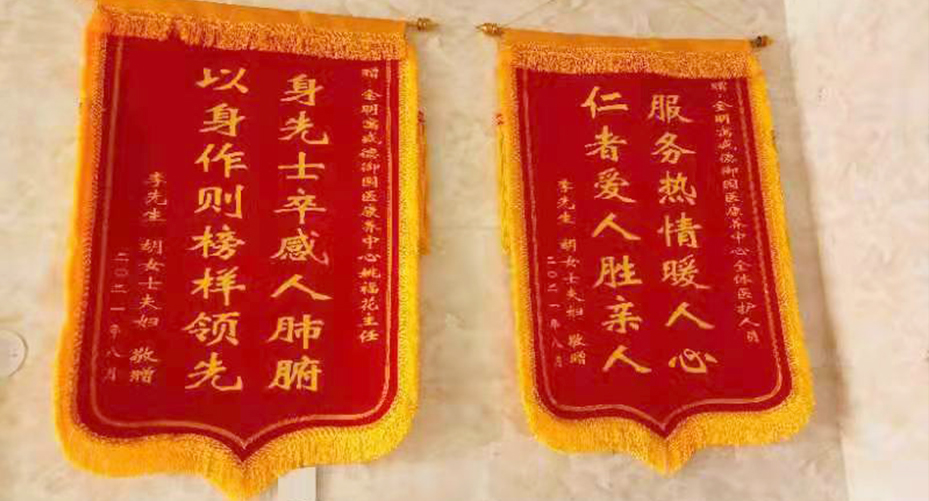 赠:金明寓盛德御园医康养中心姚福花主任
身先士卒感人肺腑
以身作则榜样领先
李先生 胡女士夫妇 敬赠
二〇二一年八月
赠:金明寓盛德御园医康养中心全体医护人员
服务热情暖人心
仁者爱人胜亲人
李先生 胡女士夫妇 敬赠
二〇二一年八月